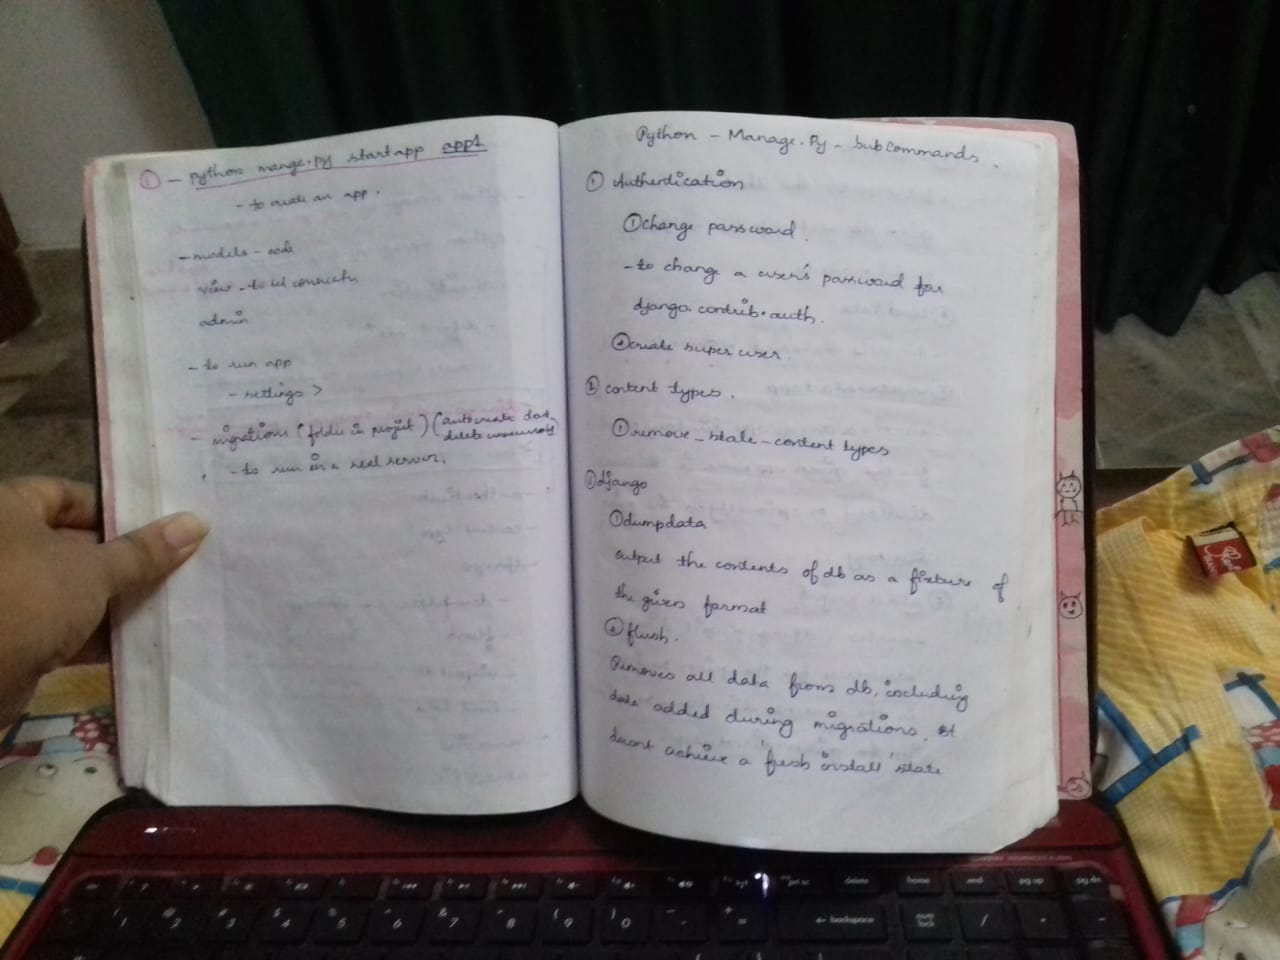 ① - python mange.py startapp app1
- to create an app.
- models - code
view - to
admin
- to run app
- settings >
- migrations (folder in project) (autocreate
delete
- to run in a real server.
Python - Manage.Py - SubCommands.
① Authentication
① change password.
- to change a user's password for
django.contrib.auth.
② create super user.
② content types.
① remove_stale_content types
③ django
① dumpdata
output the contents of db as a fixture of
the given format
② flush.
Removes all data from db, including
data added during migrations. It
doesnt achieve a 'fresh install' state